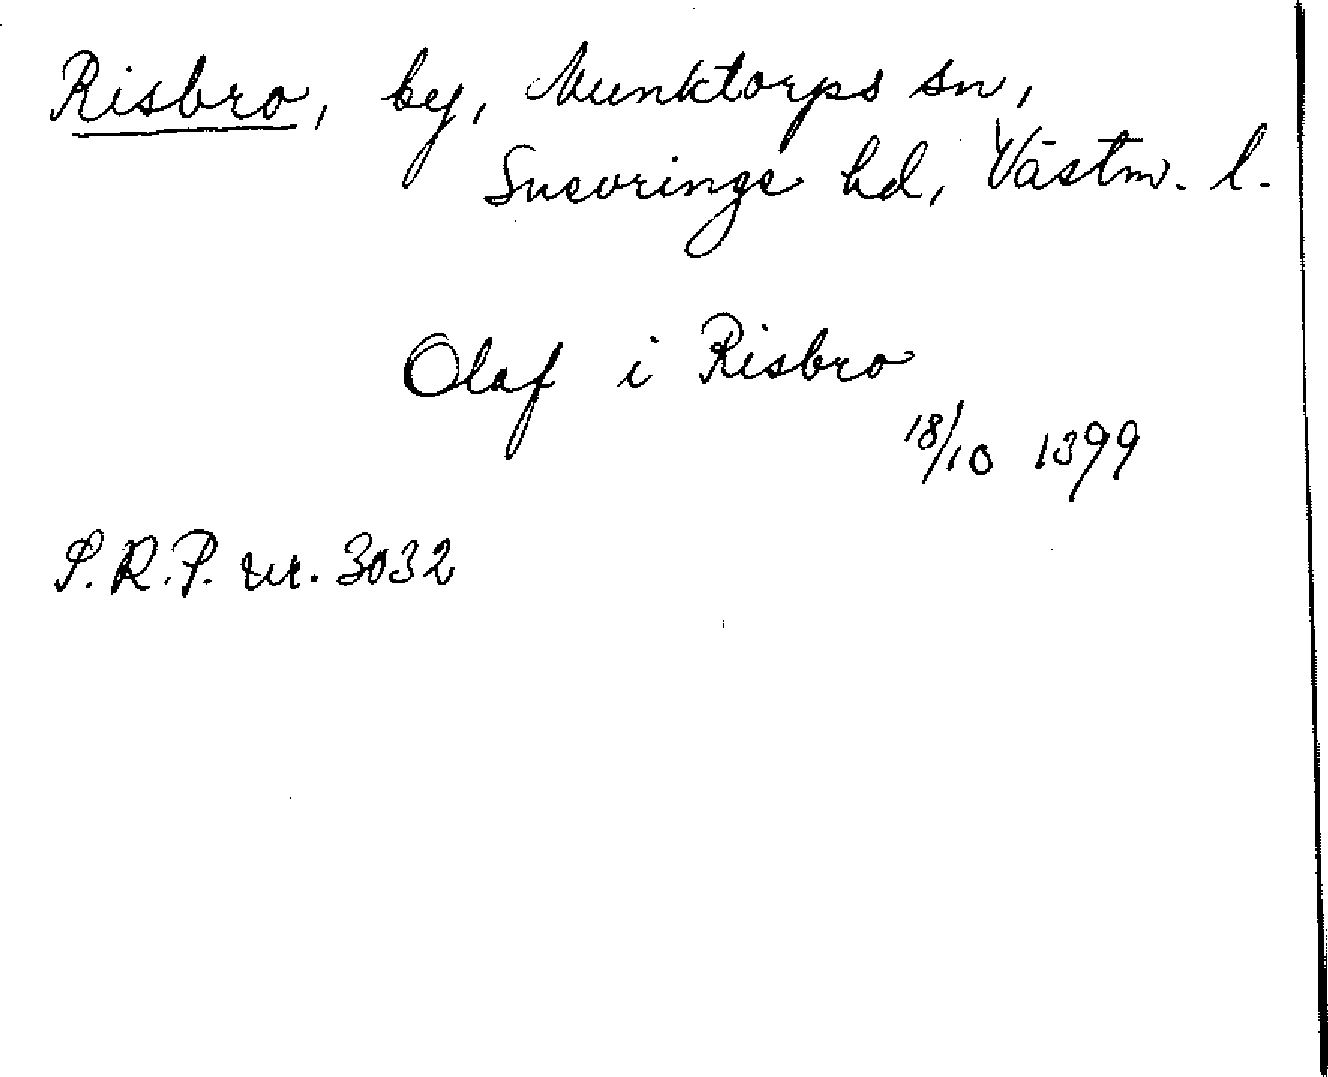 Risbro, by, Munktorps sn,
Snevringe hd, Västm. l.
Olaf i Risbro
18/10 1399
S.R.P. nr. 3032